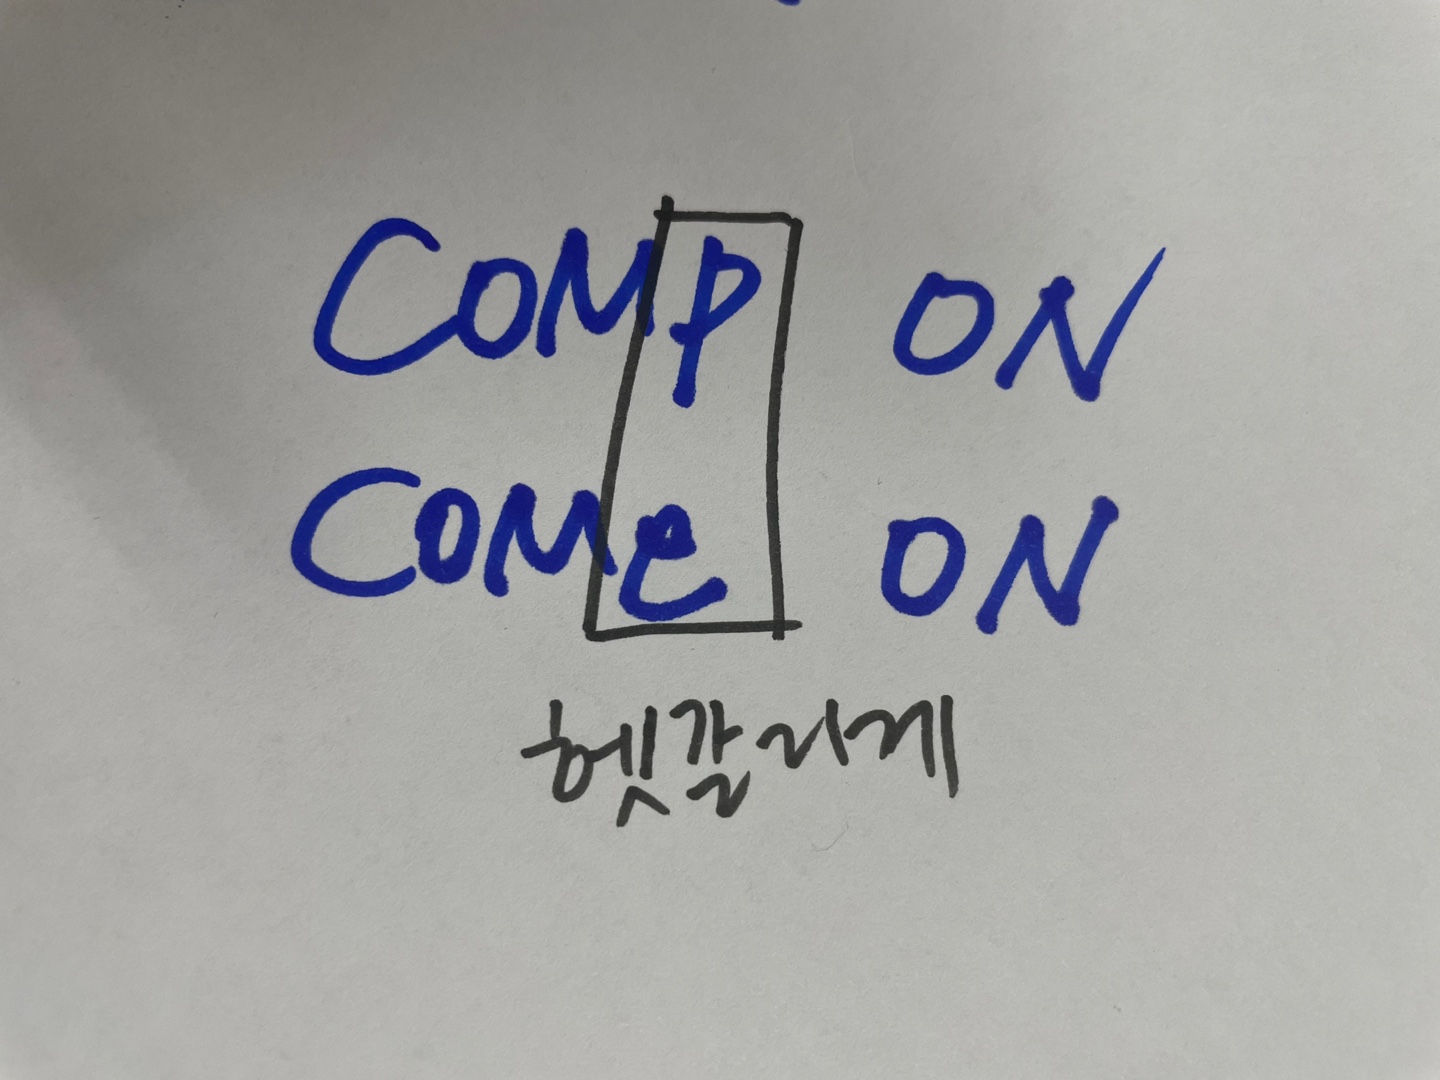 COMP ON
COMe ON
헷갈리게